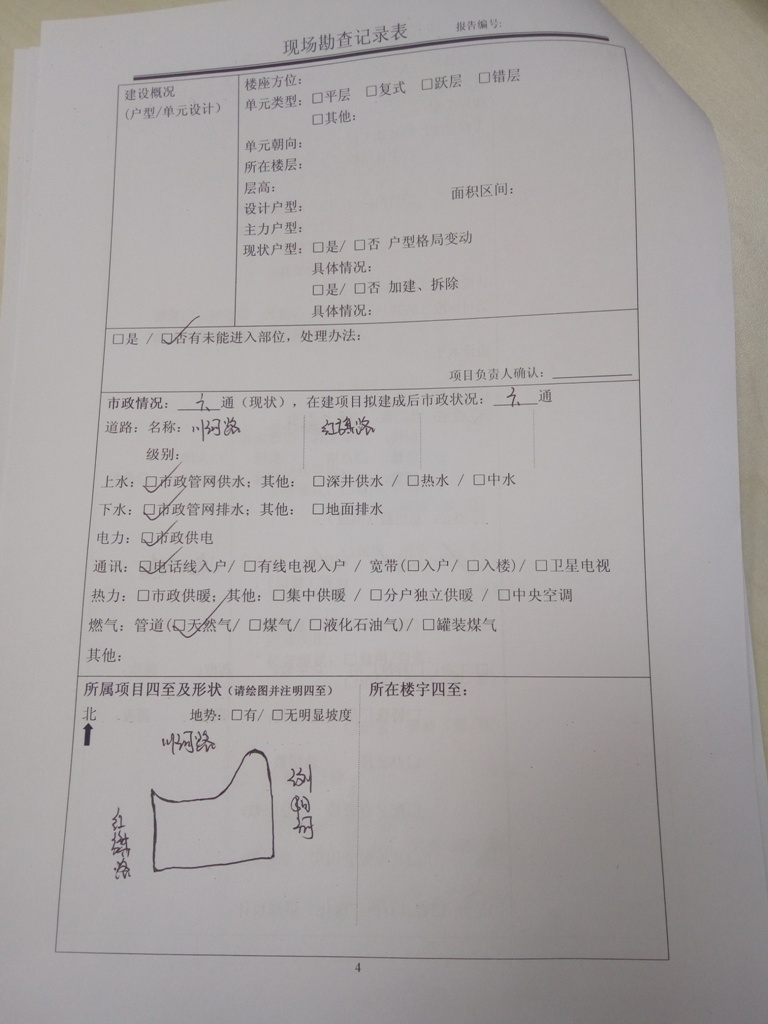 现场勘查记录表
报告编号:
建设概况
(户型/单元设计)
楼座方位:
单元类型: □平层 □复式 □跃层 □错层
□其他:
单元朝向:
所在楼层:
层高:
面积区间:
设计户型:
主力户型:
现状户型: □是/ □否 户型格局变动
具体情况:
□是/ □否 加建、拆除
具体情况:
□是 / ☑否有未能进入部位, 处理办法:
项目负责人确认:
市政情况: 六 通 (现状), 在建项目拟建成后市政状况: 六 通
道路: 名称: 川河路 红旗路
级别:
上水: ☑市政管网供水; 其他: □深井供水 / □热水 / □中水
下水: ☑市政管网排水; 其他: □地面排水
电力: ☑市政供电
通讯: ☑电话线入户/ □有线电视入户 / 宽带(□入户/ □入楼)/ □卫星电视
热力: □市政供暖; 其他: □集中供暖 / □分户独立供暖 / □中央空调
燃气: 管道(☑天然气/ □煤气/ □液化石油气)/ □罐装煤气
其他:
所属项目四至及形状 (请绘图并注明四至)
所在楼宇四至:
北
地势: □有/ □无明显坡度
川河路
浏阳河
红旗路
4